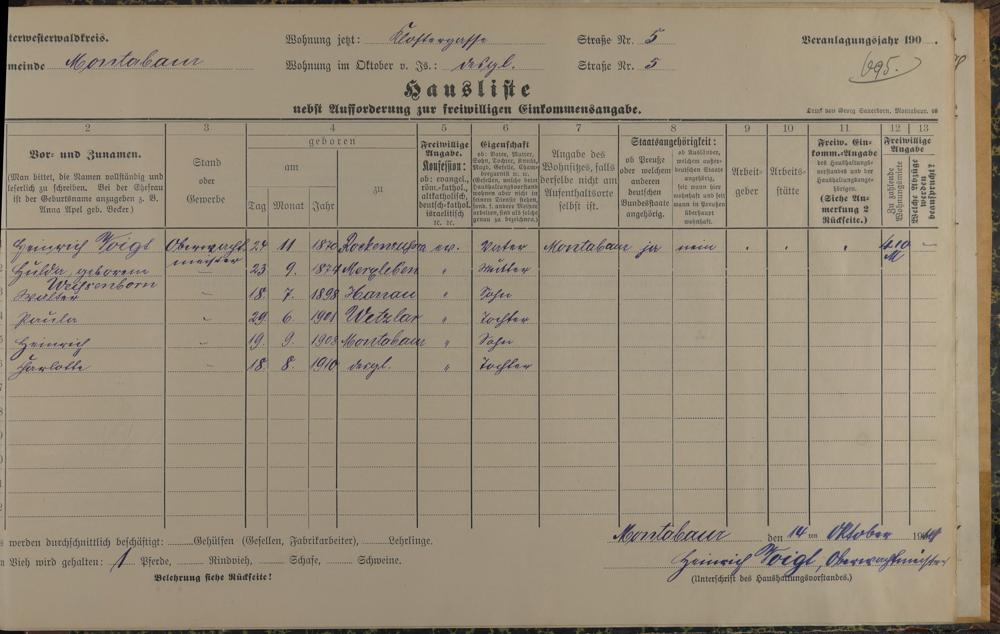 terwesterwaldkreis. Wohnung jetzt: Klostergasse Straße Nr. 5 Veranlagungsjahr 190 .
meinde Montabaur Wohnung im Oktober v. Js.: desgl. Straße Nr. 5 695.
Hausliste
nebst Aufforderung zur freiwilligen Einkommensangabe.
Druck von Georg Sauerborn, Montabaur.
2 3 4 5 6 7 8 9 10 11 12 13
Vor- und Zunamen.
(Man bittet, die Namen vollständig und
leserlich zu schreiben. Bei der Ehefrau
ist der Geburtsname anzugeben z. B.
Anna Apel geb. Becker.)
Stand
oder
Gewerbe
geboren
am
zu
Tag Monat Jahr
Freiwillige
Angabe.
Konfession:
ob: evangel.,
röm.-kathol.,
altkatholisch,
deutsch-kathol.
israelitisch
rc. rc.
Eigenschaft
ob: Vater, Mutter,
Sohn, Tochter, Knecht,
Magd, Geselle, Cham-
bregarnist rc. rc.
(Gesellen, welche beim
Haushaltungsvorstand
wohnen aber nicht in
seinem Dienste stehen,
sind als solche
genau zu bezeichnen.)
Angabe des
Wohnsitzes, falls
derselbe nicht am
Aufenthaltsorte
selbst ist.
Staatsangehörigkeit:
ob Preuße
oder welchem
anderen
deutschen
Bundesstaate
angehörig.
ob Ausländer,
welchem außer-
deutschen Staate
angehörig,
seit wann hier
wohnhaft und seit
wann in Preußen
überhaupt
wohnhaft.
Arbeit-
geber
Arbeits-
stätte
Freiw. Ein-
komm.-Angabe
des Haushaltungs-
vorstandes und der
Haushaltungsange-
hörigen.
(Siehe An-
merkung 2
Rückseite.)
Freiwillige
Angabe
Zu zahlende
Wohnungsmiete
Welche Abzüge
werden
beansprucht?
Heinrich Voigt Oberwacht- 24 11 1870 ev. Vater Montabaur ja nein 410 —
meister M
Hulda, geborene — 23 9. 1874 Merxleben " Mutter
Weißenborn
Walter — 18. 7. 1898 Hanau " Sohn
Paula 29 6 1901 Wetzlar " Tochter
Heinrich 19. 9. 1908 Montabaur " Sohn
Charlotte 18. 8. 1910 desgl. " Tochter
s werden durchschnittlich beschäftigt: Gehülfen (Gesellen, Fabrikarbeiter), Lehrlinge.
n Vieh wird gehalten: 1 Pferde, Rindvieh, Schafe, Schweine.
Belehrung siehe Rückseite!
Montabaur den 14 ten Oktober
Heinrich Voigt, Oberwachtmeister
(Unterschrift des Haushaltungsvorstandes.)